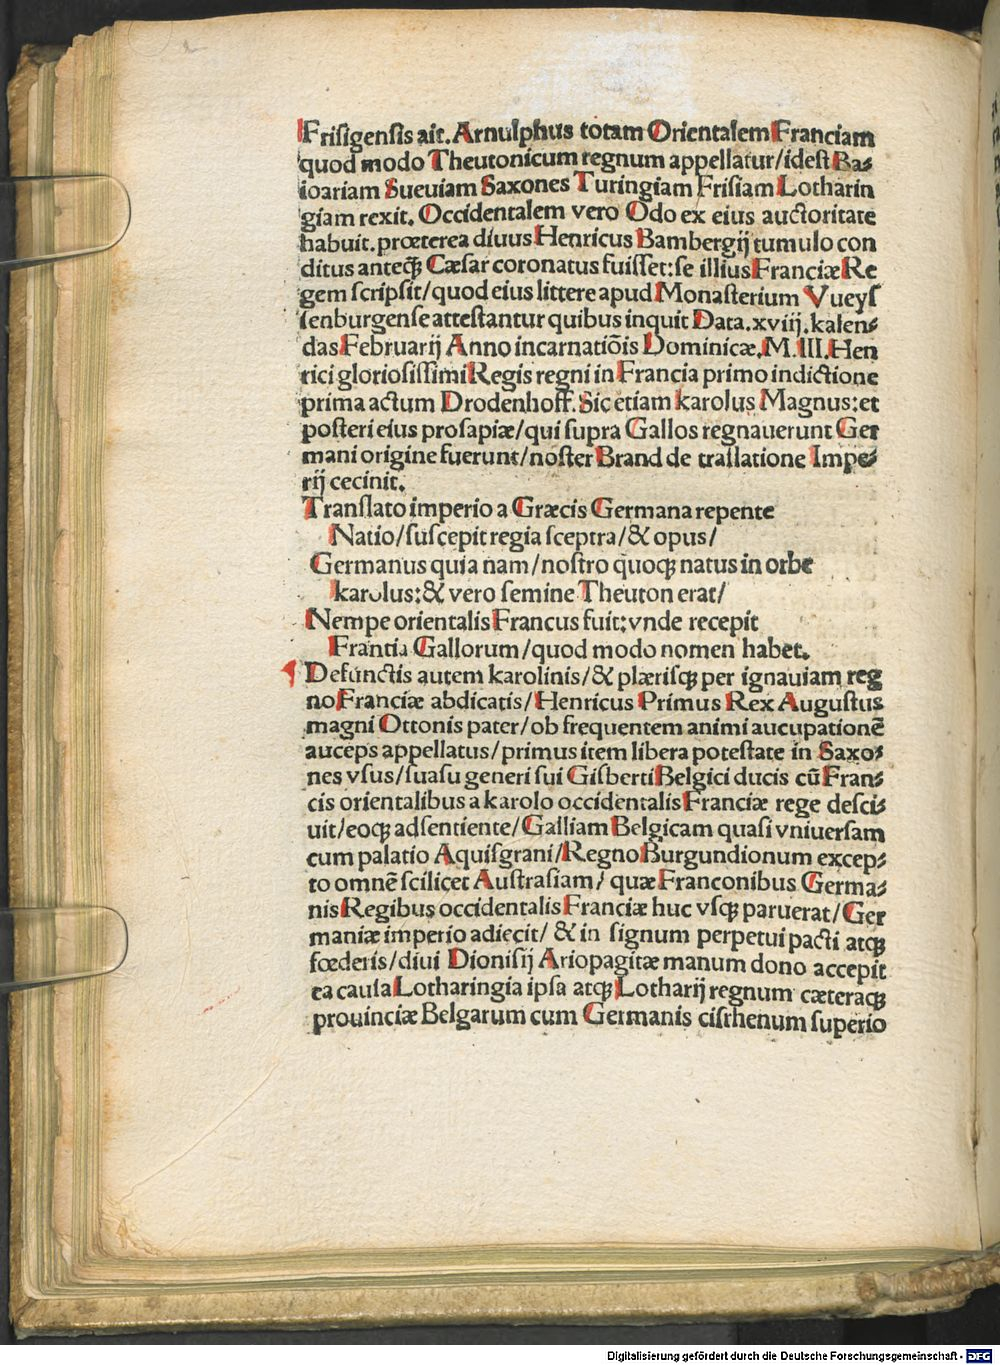 Frisigensis ait. Arnulphus totam Orientalem Franciam
quod modo Theutonicum regnum appellatur/idest Ba⸗
ioariam Sueuiam Saxones Turingiam Frisiam Lotharin
giam rexit. Occidentalem vero Odo ex eius auctoritate
habuit. prœterea diuus Henricus Bambergij tumulo con
ditus anteqꝫ Cæsar coronatus fuisset:se illius Franciæ Re
gem scripsit/quod eius littere apud Monasterium Vueyſ
senburgense attestantur quibus inquit Data.xviij.kalen⸗
das Februarij Anno incarnatiōis Dominicæ.M.III.Hen
rici gloriosissimi Regis regni in Francia primo indictione
prima actum Drodenhoff. Sic etiam karolus Magnus:et
posteri eius prosapiæ/qui supra Gallos regnauerunt Ger
mani origine fuerunt/noster Brand de traslatione Impe⸗
rij cecinit.
Translato imperio a Græcis Germana repente
Natio/suscepit regia sceptra/& opus/
Germanus quia nam/nostro q̄uoqꝫ natus in orbe
karolus:& vero semine Theuton erat/
Nempe orientalis Francus fuit:vnde recepit
Frantia Gallorum/quod modo nomen habet.
Defunctis autem karolinis/& plærisqꝫ per ignauiam reg
no Franciæ abdicatis/Henricus Primus Rex Augustus
magni Ottonis pater/ob frequentem animi aucupationē
auceps appellatus/primus item libera potestate in Saxo⸗
nes vsus/suasu generi sui Gisberti Belgici ducis cū Fran⸗
cis orientalibus a karolo occidentalis Franciæ rege desci⸗
uit/eoqꝫ adsentiente/Galliam Belgicam quasi vniuersam
cum palatio Aquisgrani/Regno Burgundionum excep⸗
to omnē scilicet Austrasiam/ quæ Franconibus Germa⸗
nis Regibus occidentalis Franciæ huc vsqꝫ paruerat/Ger
maniæ imperio adiecit/ & in signum perpetui pacti atqꝫ
fœderis/diui Dionisij Ariopagitæ manum dono accepit
ea causa Lotharingia ipsa atqꝫ Lotharij regnum cæteraqꝫ
prouinciæ Belgarum cum Germanis cisrhenum superio
Digitalisierung gefördert durch die Deutsche Forschungsgemeinschaft - DFG